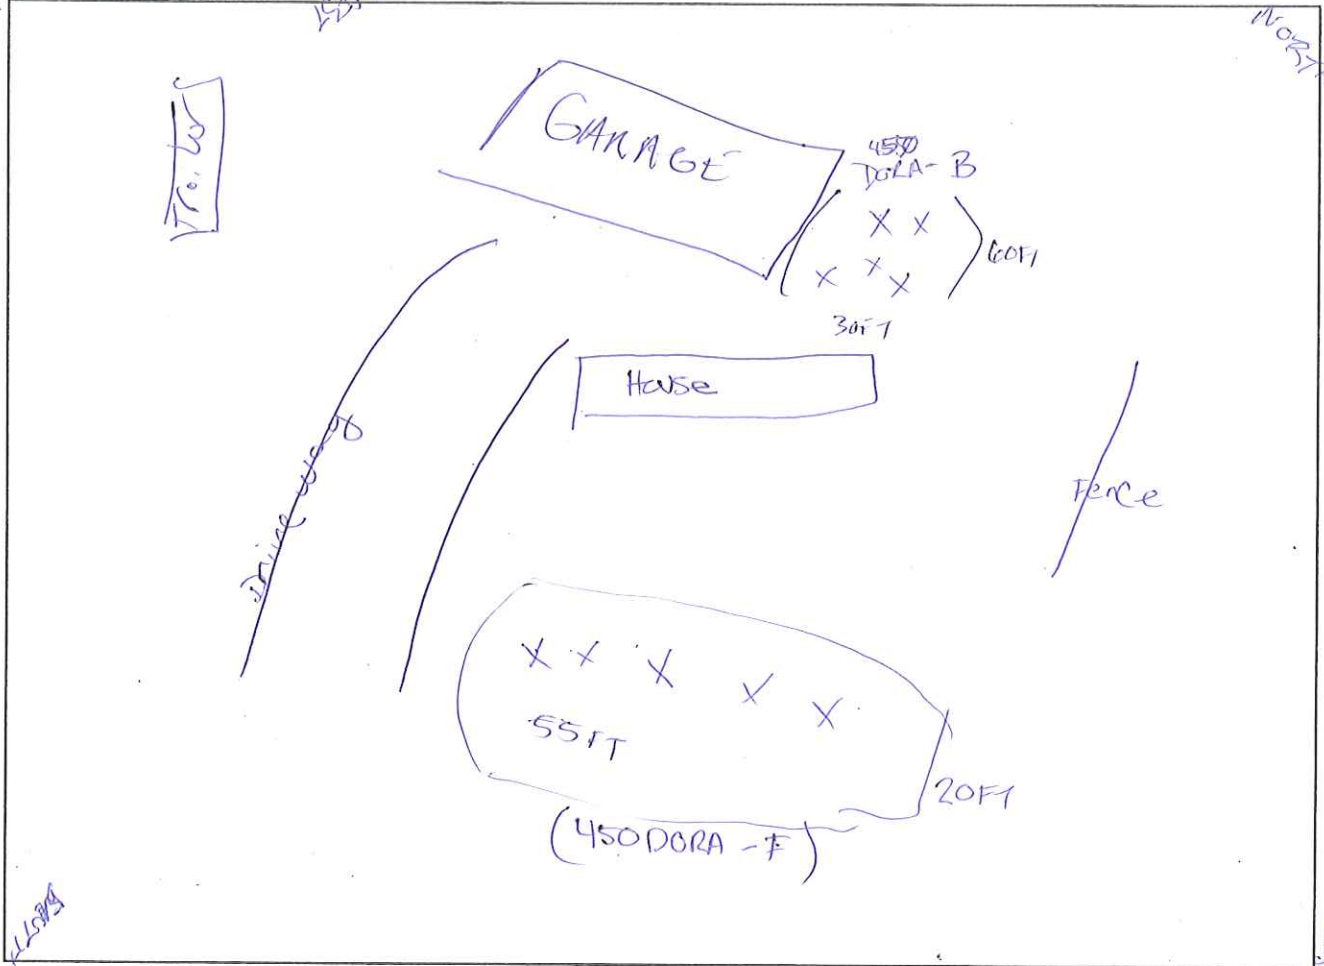 NORT
GARAGE
DORA-B
X X
X X X
60FT
30FT
House
Driveway
Fence
X X X X X
55FT
20FT
(450DORA-F)